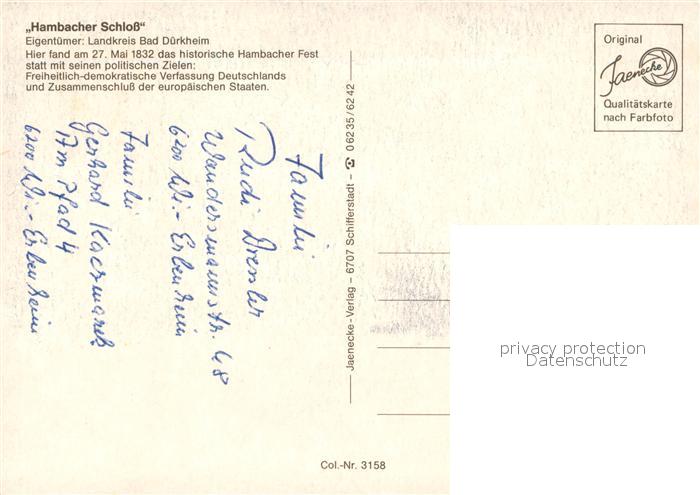 „Hambacher Schloß"
Eigentümer: Landkreis Bad Dürkheim
Hier fand am 27. Mai 1832 das historische Hambacher Fest
statt mit seinen politischen Zielen:
Freiheitlich-demokratische Verfassung Deutschlands
und Zusammenschluß der europäischen Staaten.
Original
Jaenecke
Qualitätskarte
nach Farbfoto
Familie
Rudi Dressler
Wandersmannstr. 68
6200 Wi.-Erbenheim
Familie
Gerhard Kaczmarek
Am Pfad 4
6200 Wi.-Erbenheim
Jaenecke-Verlag – 6707 Schifferstadt – ☎ 06235/6242
privacy protection
Datenschutz
Col.-Nr. 3158